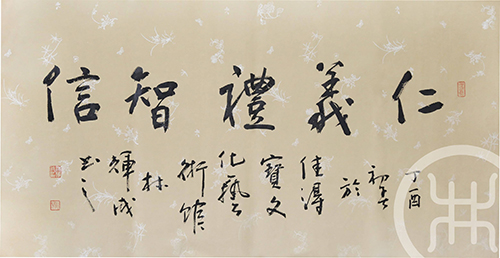 仁義禮智信
丁酉
初春
於
佳得
寶文
化藝
術館
林
輝成
書